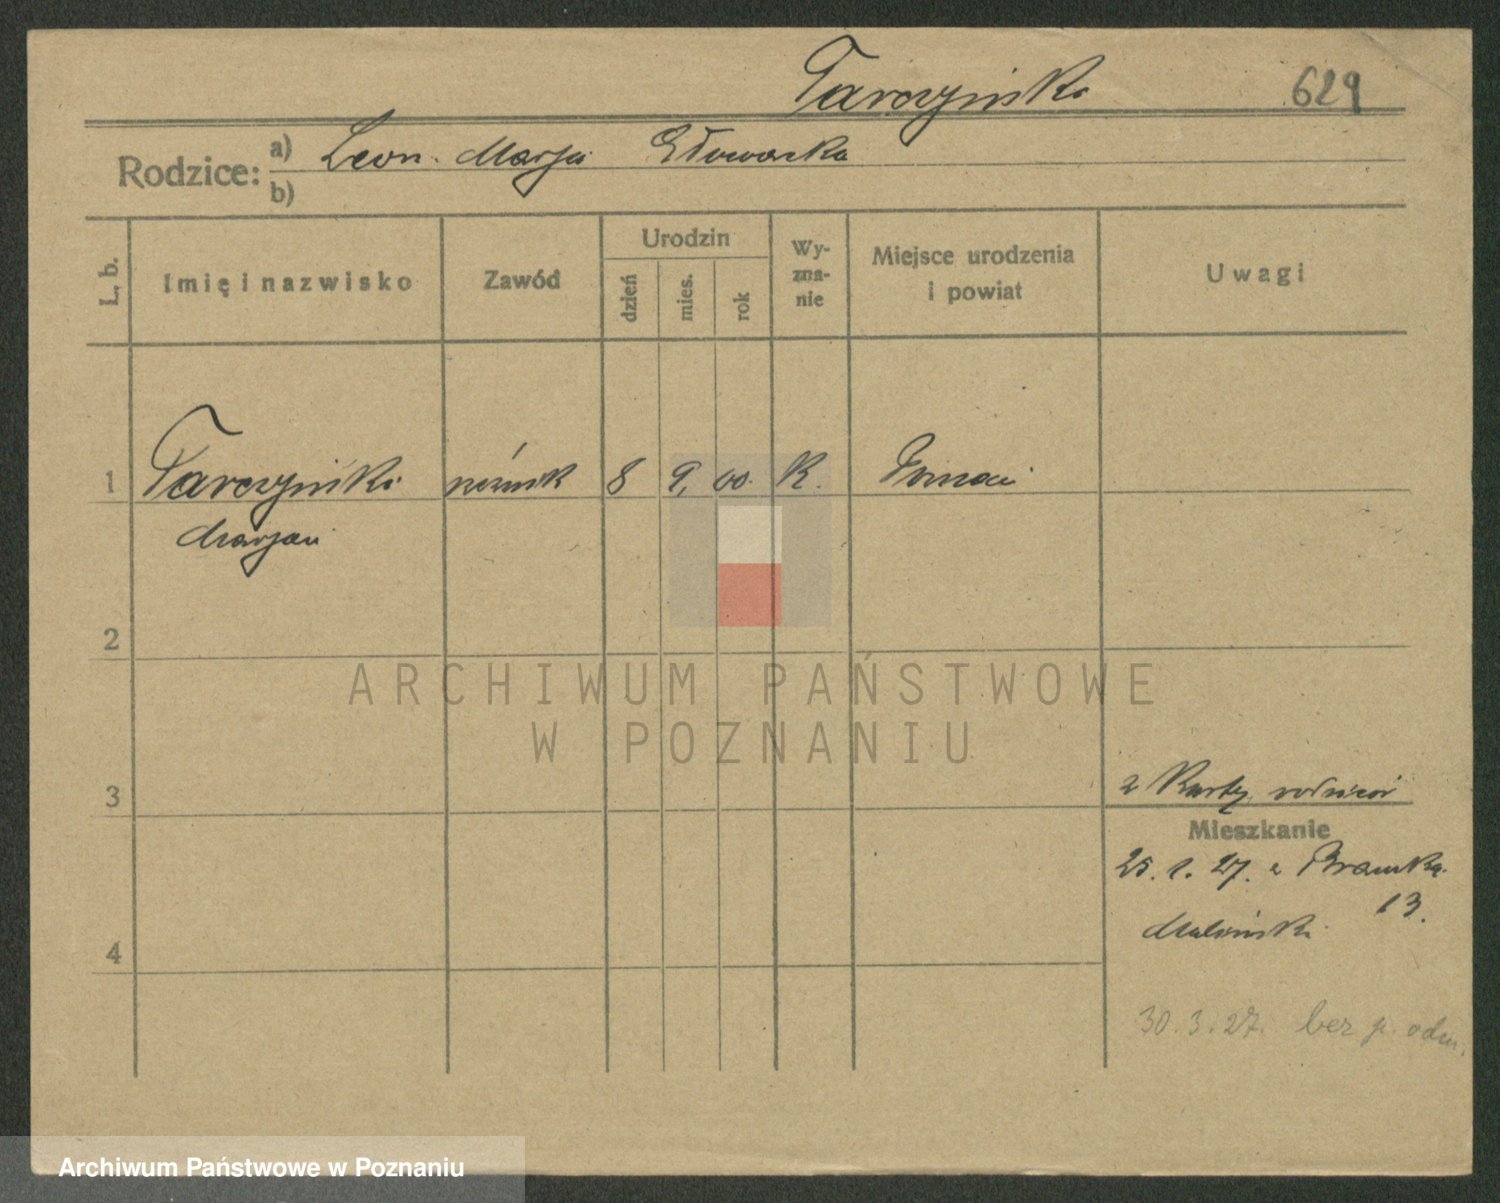 Tarczyński
629
Rodzice:
a) Leon. Marja Głowacka
b)
L. b.
Imię i nazwisko
Zawód
Urodzin
dzień
mies.
rok
Wy-
zna-
nie
Miejsce urodzenia
i powiat
Uwagi
1 Tarczyński 8 9. 00. K.
Marjan
2
3
z Karty rodziców
Mieszkanie
25. 1. 27. z
13.
4
30. 3. 27. bez p. odm.
ARCHIWUM PAŃSTWOWE
W POZNANIU
Archiwum Państwowe w Poznaniu